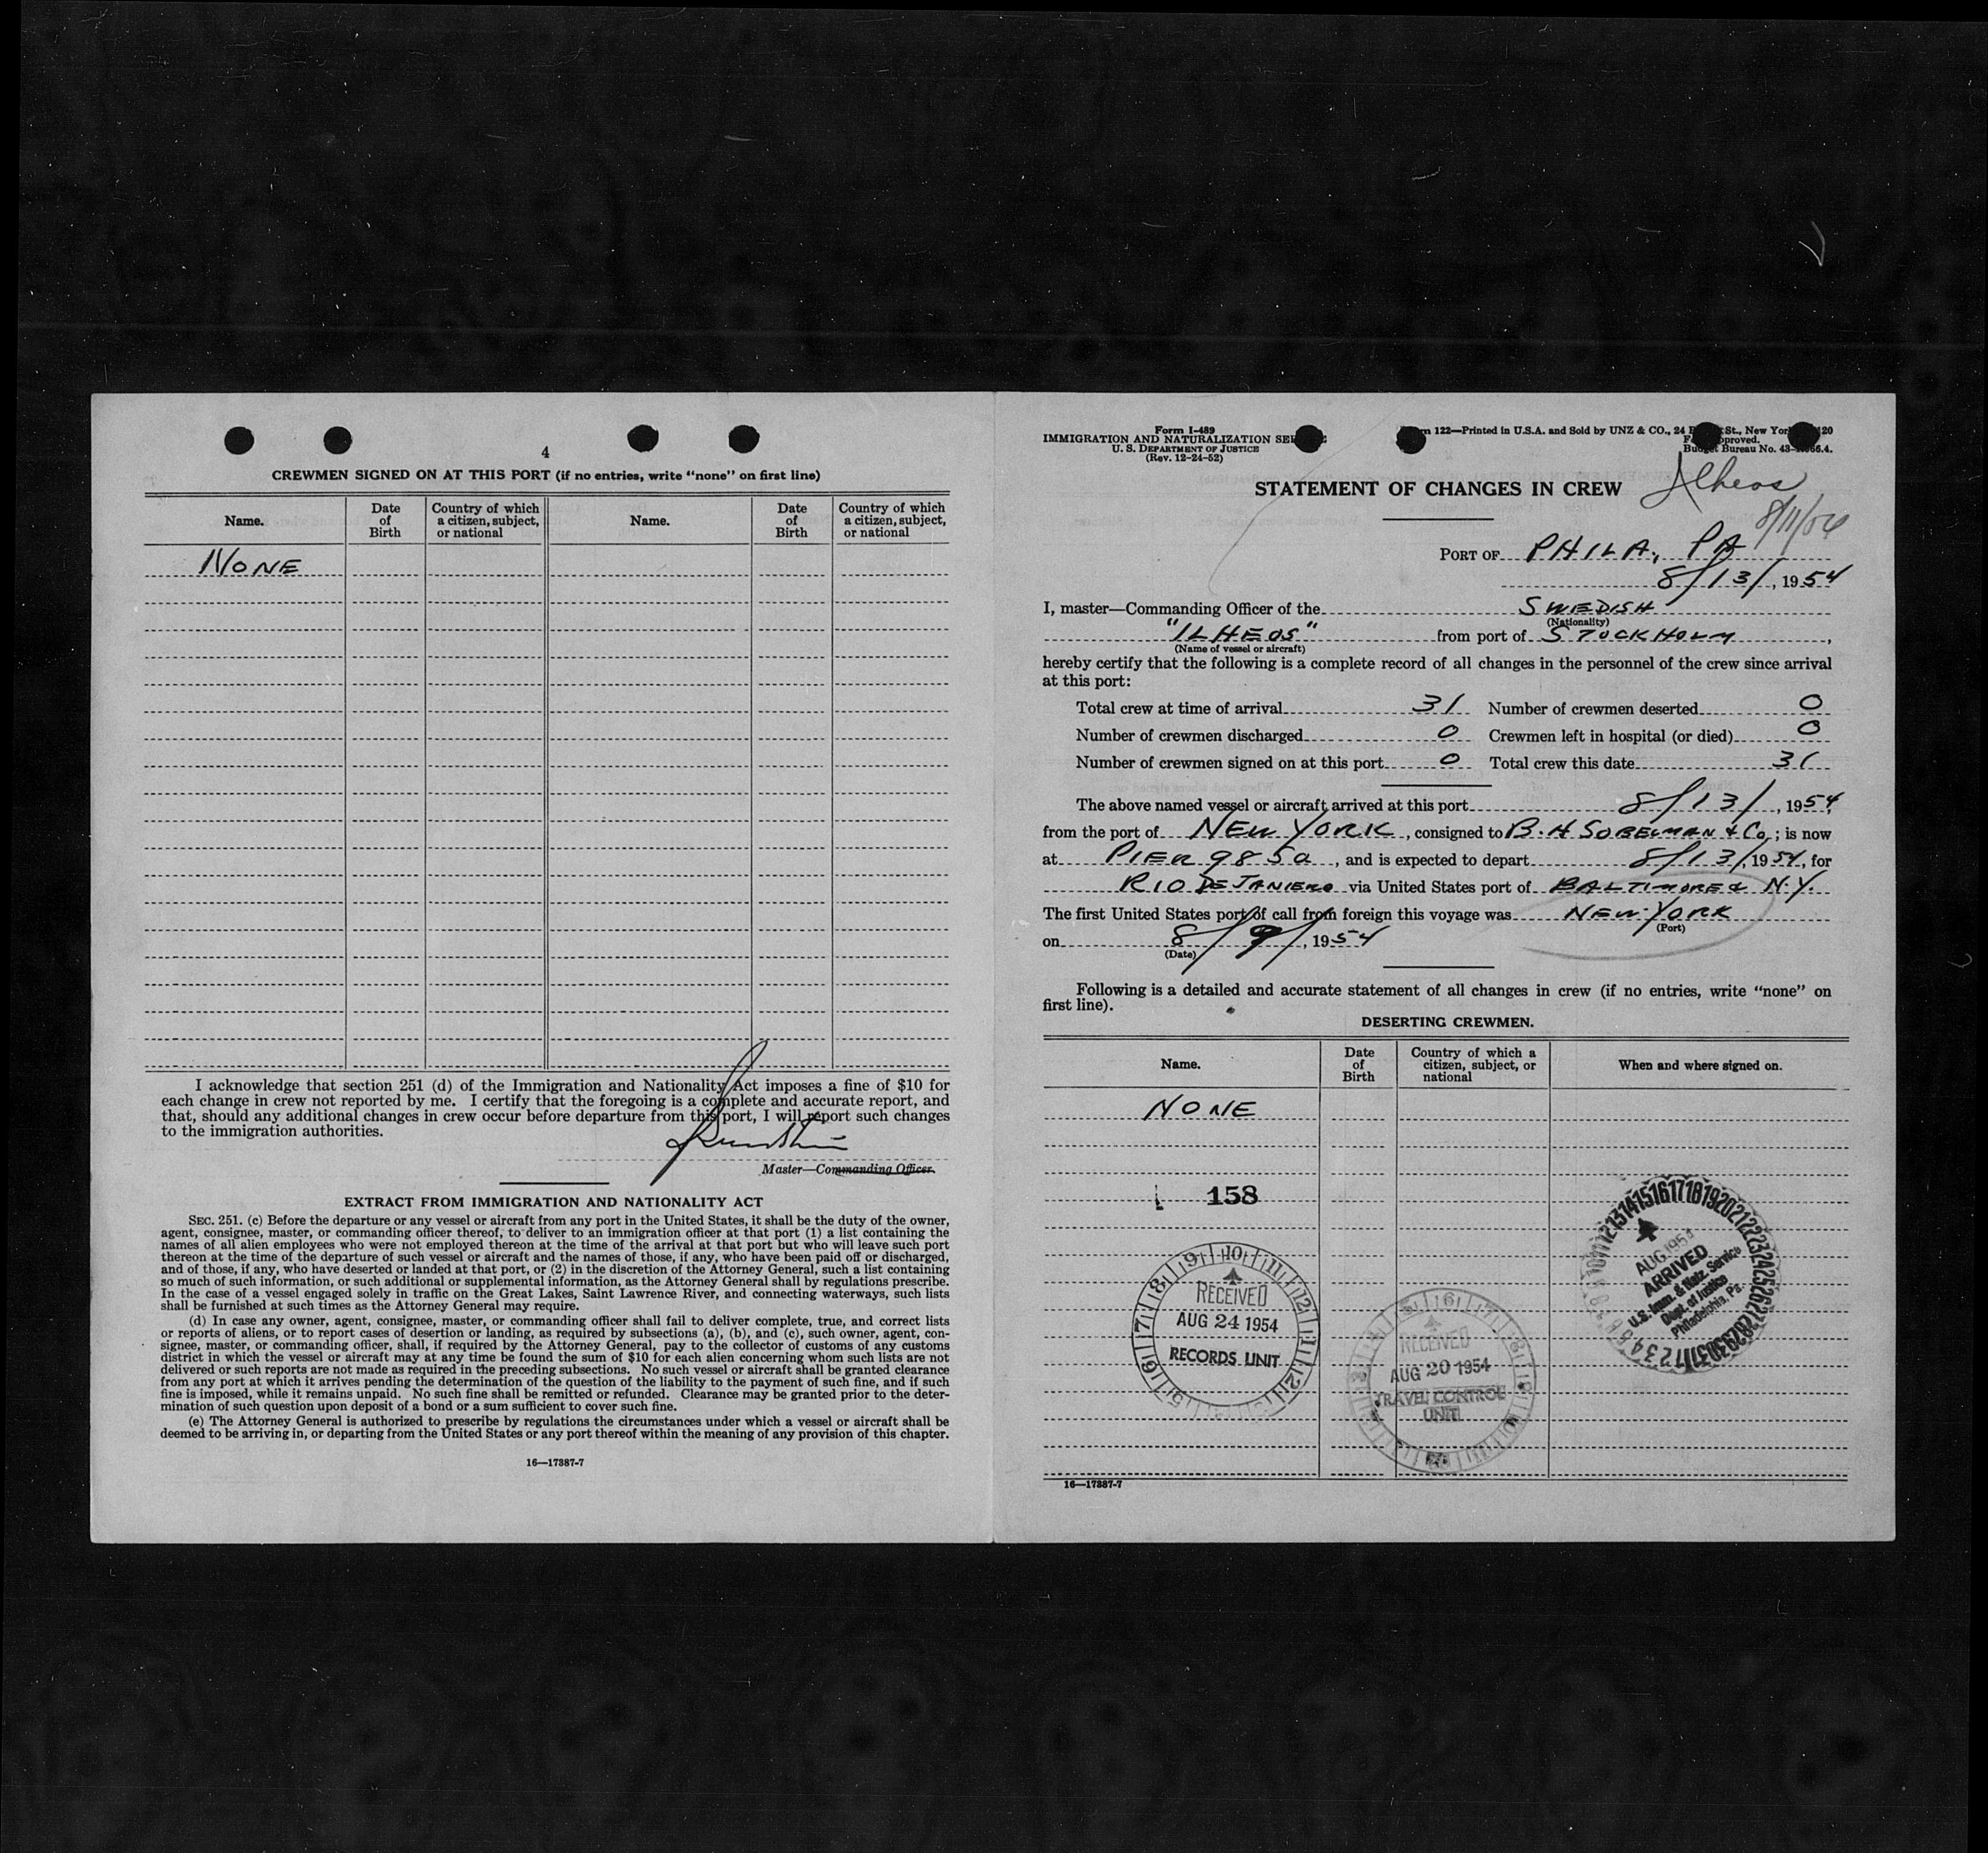 4
CREWMEN SIGNED ON AT THIS PORT (if no entries, write “none” on first line)
Name. Date of Birth Country of which a citizen, subject, or national Name. Date of Birth Country of which a citizen, subject, or national
NONE
I acknowledge that section 251 (d) of the Immigration and Nationality Act imposes a fine of $10 for
each change in crew not reported by me. I certify that the foregoing is a complete and accurate report, and
that, should any additional changes in crew occur before departure from this port, I will report such changes
to the immigration authorities.
Master—Commanding Officer.
EXTRACT FROM IMMIGRATION AND NATIONALITY ACT
SEC. 251. (c) Before the departure or any vessel or aircraft from any port in the United States, it shall be the duty of the owner,
agent, consignee, master, or commanding officer thereof, to deliver to an immigration officer at that port (1) a list containing the
names of all alien employees who were not employed thereon at the time of the arrival at that port but who will leave such port
thereon at the time of the departure of such vessel or aircraft and the names of those, if any, who have been paid off or discharged,
and of those, if any, who have deserted or landed at that port, or (2) in the discretion of the Attorney General, such a list containing
so much of such information, or such additional or supplemental information, as the Attorney General shall by regulations prescribe.
In the case of a vessel engaged solely in traffic on the Great Lakes, Saint Lawrence River, and connecting waterways, such lists
shall be furnished at such times as the Attorney General may require.
(d) In case any owner, agent, consignee, master, or commanding officer shall fail to deliver complete, true, and correct lists
or reports of aliens, or to report cases of desertion or landing, as required by subsections (a), (b), and (c), such owner, agent, con-
signee, master, or commanding officer, shall, if required by the Attorney General, pay to the collector of customs of any customs
district in which the vessel or aircraft may at any time be found the sum of $10 for each alien concerning whom such lists are not
delivered or such reports are not made as required in the preceding subsections. No such vessel or aircraft shall be granted clearance
from any port at which it arrives pending the determination of the question of the liability to the payment of such fine, and if such
fine is imposed, while it remains unpaid. No such fine shall be remitted or refunded. Clearance may be granted prior to the deter-
mination of such question upon deposit of a bond or a sum sufficient to cover such fine.
(e) The Attorney General is authorized to prescribe by regulations the circumstances under which a vessel or aircraft shall be
deemed to be arriving in, or departing from the United States or any port thereof within the meaning of any provision of this chapter.
16—17387-7
Form I-489
IMMIGRATION AND NATURALIZATION
U. S. DEPARTMENT OF JUSTICE
(Rev. 12-24-52)
122—Printed in U.S.A. and Sold by UNZ & CO., 24 St., New York
Bureau No.
STATEMENT OF CHANGES IN CREW
Ilheos
8/11/54
PORT OF PHILA., PA
8/13/, 1954
I, master—Commanding Officer of the SWEDISH
(Nationality)
"ILHEOS" from port of STOCKHOLM,
(Name of vessel or aircraft)
hereby certify that the following is a complete record of all changes in the personnel of the crew since arrival
at this port:
Total crew at time of arrival 31 Number of crewmen deserted 0
Number of crewmen discharged 0 Crewmen left in hospital (or died) 0
Number of crewmen signed on at this port 0 Total crew this date 31
The above named vessel or aircraft arrived at this port 8/13/, 1954,
from the port of NEW YORK, consigned to B. H SOBELMAN & Co; is now
at PIER 98 So, and is expected to depart 8/13/, 1954, for
RIO DE JANIERO via United States port of BALTIMORE & N.Y.
The first United States port of call from foreign this voyage was NEW YORK
(Port)
on 8/9/, 1954
(Date)
Following is a detailed and accurate statement of all changes in crew (if no entries, write “none” on
first line).
DESERTING CREWMEN.
Name. Date of Birth Country of which a citizen, subject, or national When and where signed on.
NONE
158
RECEIVED
AUG 24 1954
RECORDS UNIT
RECEIVED
AUG 20 1954
TRAVEL CONTROL
UNIT
AUG 1954
ARRIVED
U.S. Imm. & Natz. Service
Dept. of Justice
Philadelphia, Pa.
16—17387-7